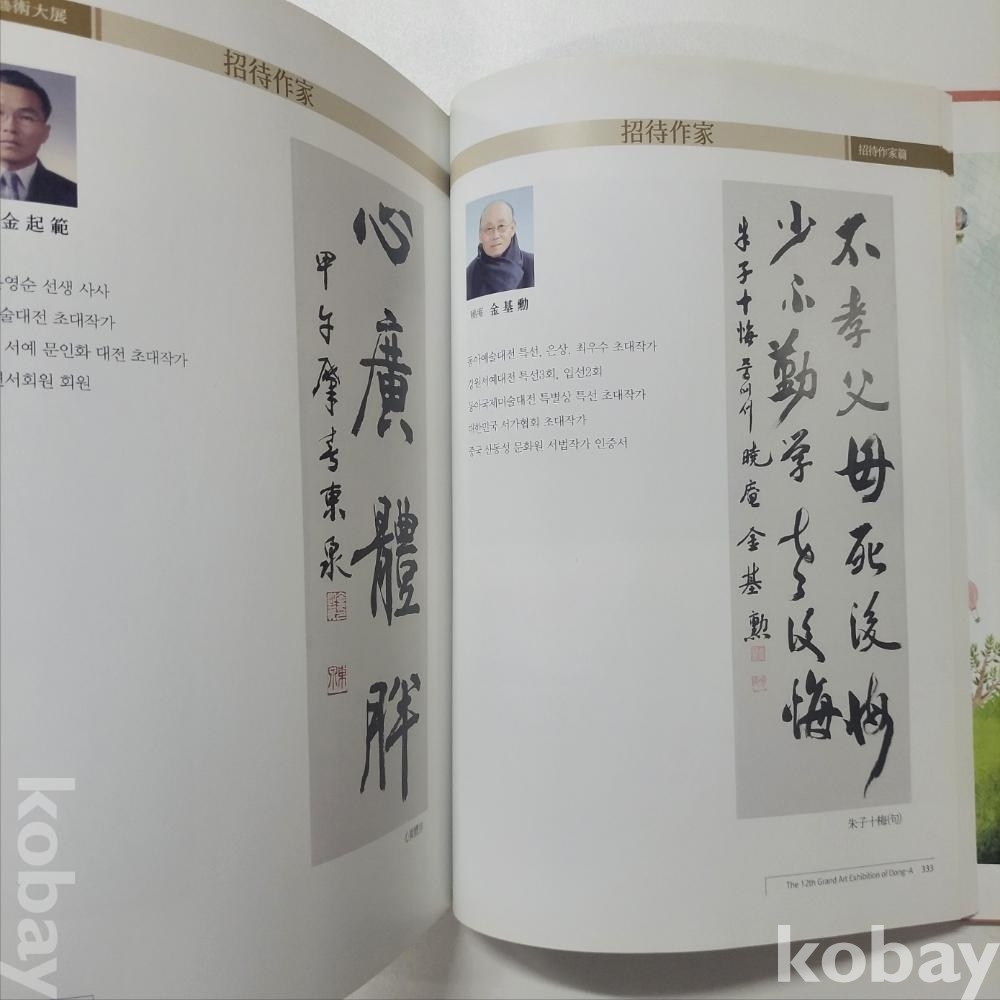 藝術大展
招待作家
金起範
영순 선생 사사
술대전 초대작가
서예 문인화 대전 초대작가
서회원 회원
心廣體胖
甲午肇春東泉
招待作家
招待作家篇
金基勳
동아예술대전 특선, 은상, 최우수 초대작가
강원서예대전 특선3회, 입선2회
동아국제미술대전 특별상 특선 초대작가
대한민국 서가협회 초대작가
중국 산동성 문화원 서법작가 인증서
不孝父母死後悔
少不勤學老後悔
朱子十悔 句 에서 曉庵 金基勳
朱子十梅(句)
The 12th Grand Art Exhibition of Dong-A 333
kobay
kobay